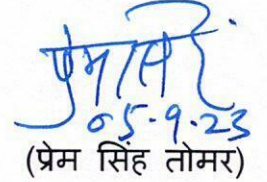 प्रेम सिंह
05-9-23
(प्रेम सिंह तोमर)